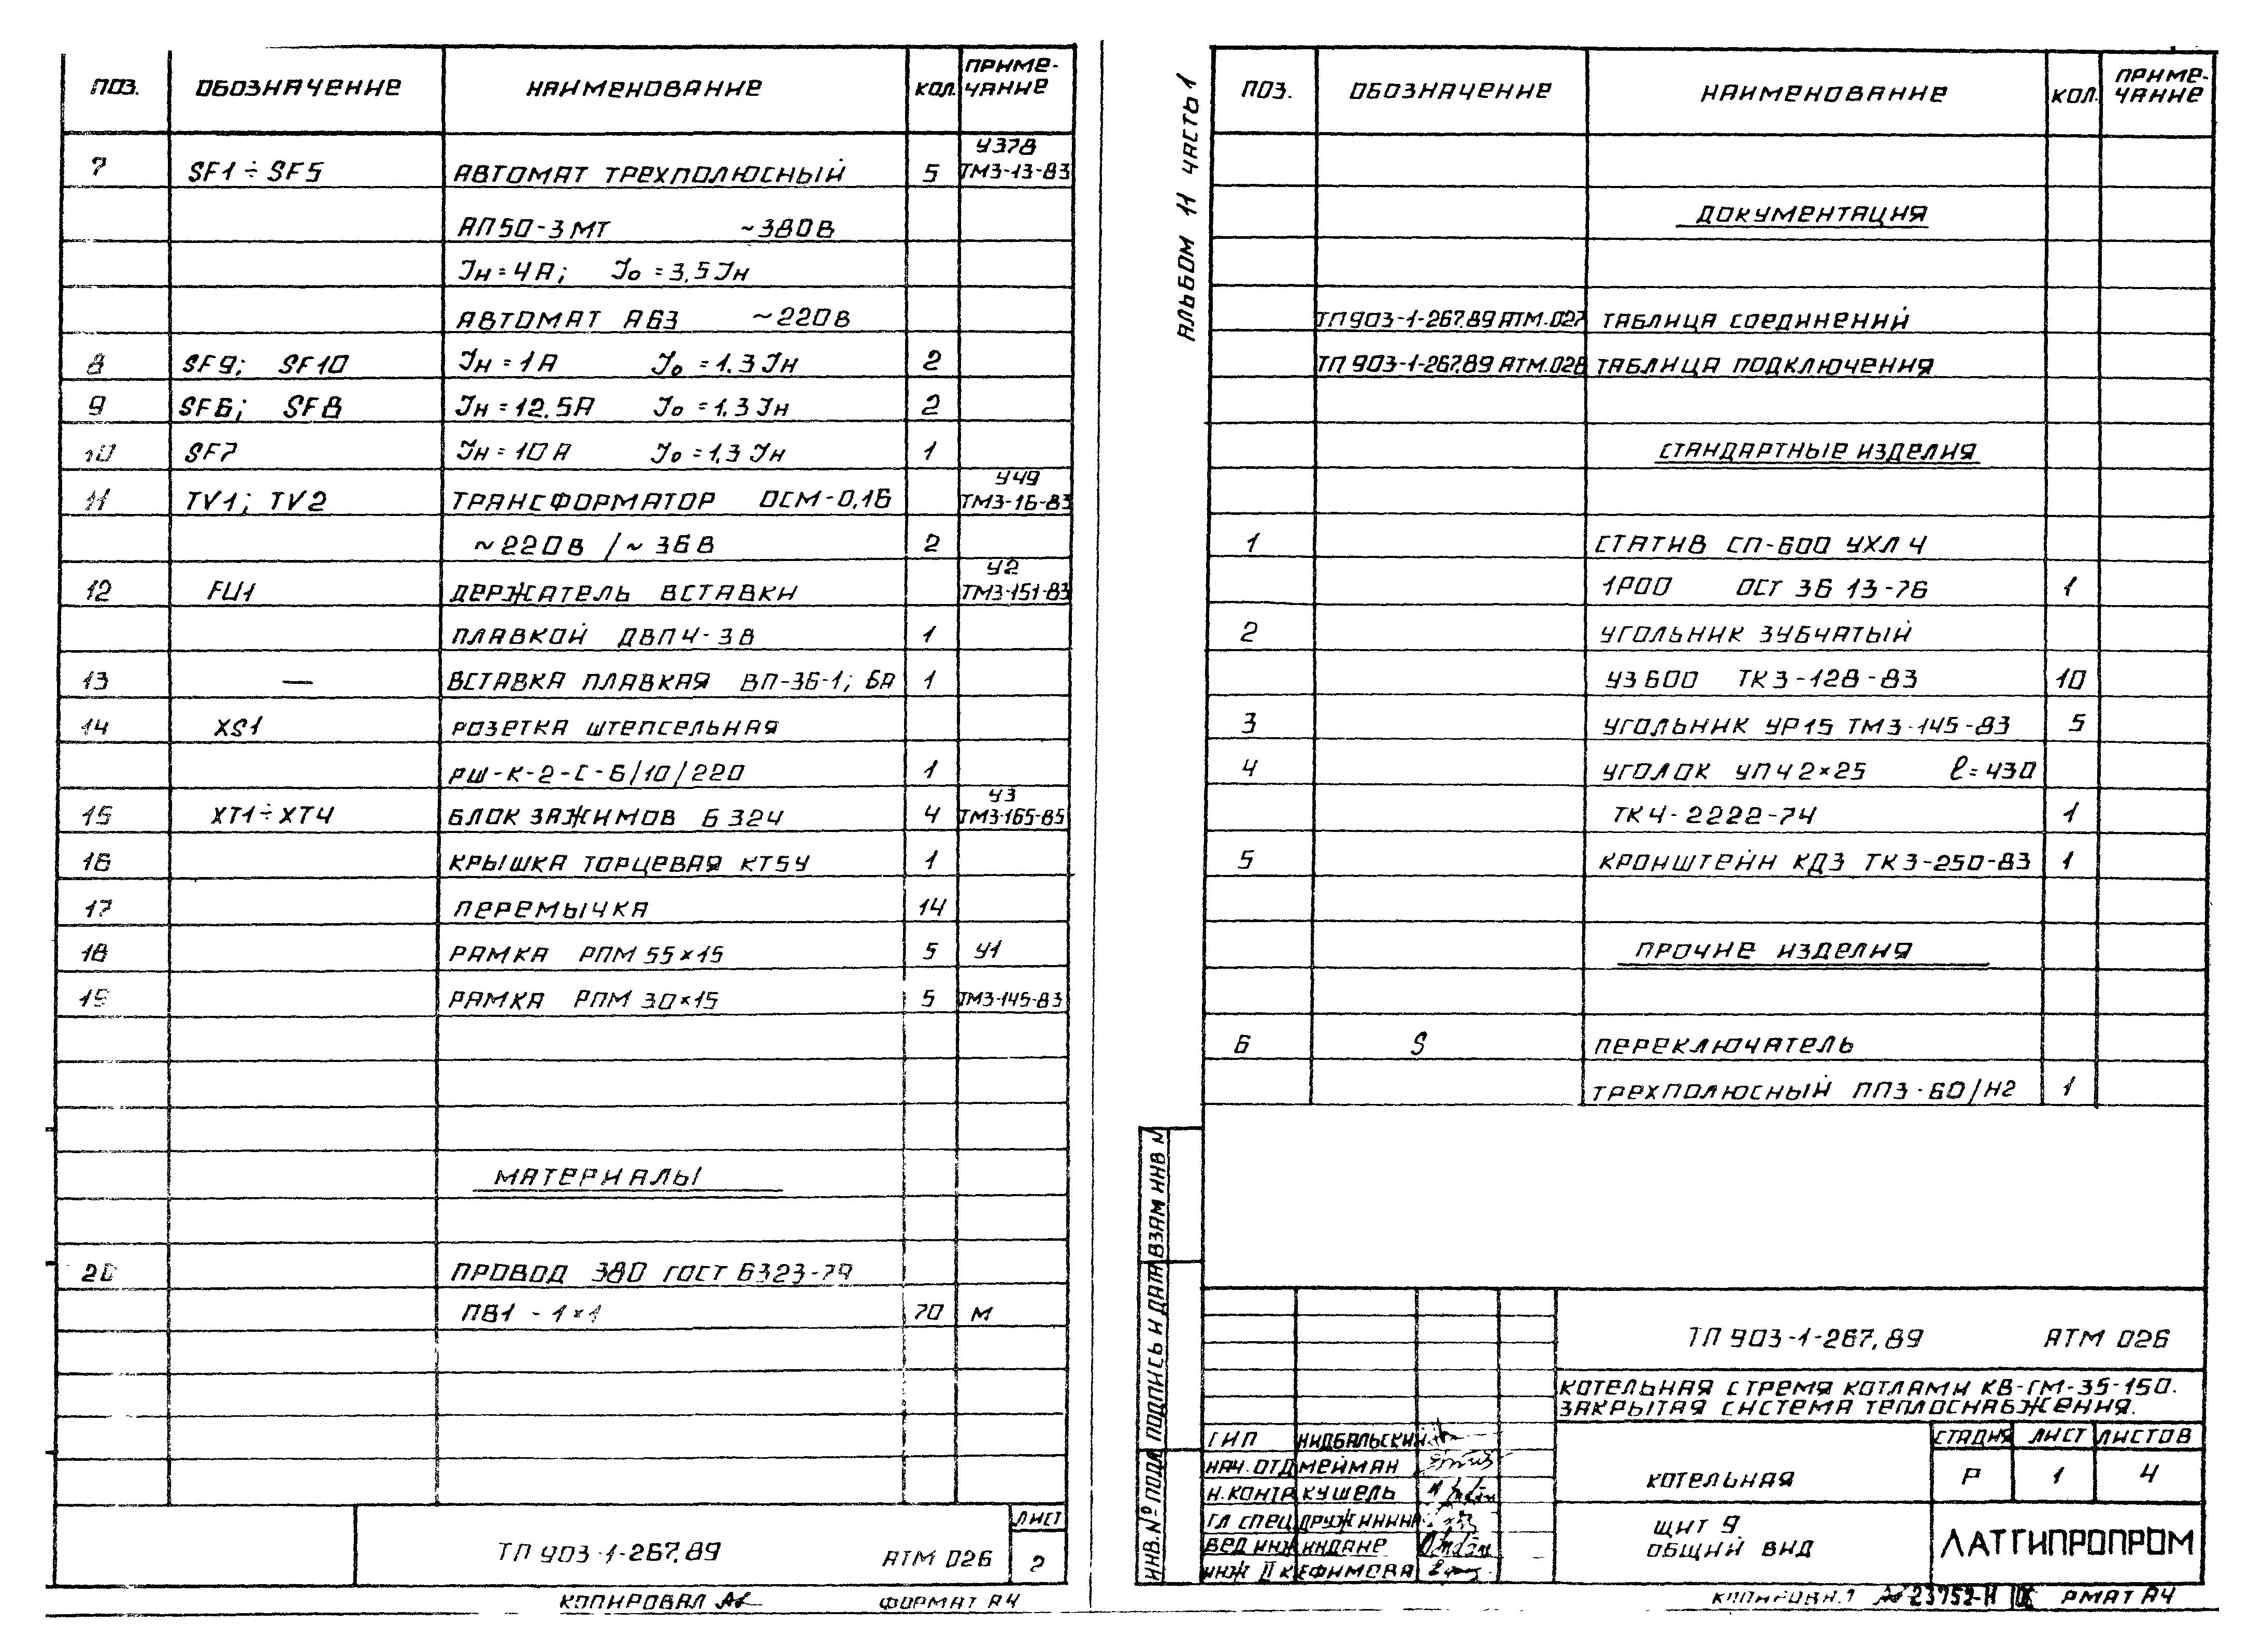 ПОЗ. ОБОЗНАЧЕНИЕ НАИМЕНОВАНИЕ КОЛ. ПРИМЕ-
ЧАНИЕ
У378
7 SF1÷SF5 АВТОМАТ ТРЕХПОЛЮСНЫЙ 5 ТМ3-13-83
АП50-3МТ ~380В
Iн=4А; Iо=3,5Iн
АВТОМАТ А63 ~220В
8 SF9; SF10 Iн=1А Iо=1.3Iн 2
9 SF6; SF8 Iн=12.5А Iо=1.3Iн 2
10 SF7 Iн=10А Iо=1,3Iн 1
У49
11 TV1; TV2 ТРАНСФОРМАТОР ОСМ-0,16 ТМ3-16-83
~220В /~36В 2
У2
12 FU1 ДЕРЖАТЕЛЬ ВСТАВКИ ТМ3-151-83
ПЛАВКОЙ ДВП4-3В 1
13 — ВСТАВКА ПЛАВКАЯ ВП-3Б-1; 6А 1
14 XS1 РОЗЕТКА ШТЕПСЕЛЬНАЯ
РШ-К-2-С-6/10/220 1
У3
15 XT1÷XT4 БЛОК ЗАЖИМОВ Б324 4 ТМ3-165-85
16 КРЫШКА ТОРЦЕВАЯ КТ5У 1
17 ПЕРЕМЫЧКА 14
18 РАМКА РПМ 55×15 5 У1
19 РАМКА РПМ 30×15 5 ТМ3-145-83
МАТЕРИАЛЫ
20 ПРОВОД 380 ГОСТ 6323-79
ПВ1 - 1×1 70 М
ТП 903-1-267.89 АТМ 026
ЛИСТ
2
КОПИРОВАЛ
ФОРМАТ А4
АЛЬБОМ 11 ЧАСТЬ 1
ПОЗ. ОБОЗНАЧЕНИЕ НАИМЕНОВАНИЕ КОЛ. ПРИМЕ-
ЧАНИЕ
ДОКУМЕНТАЦИЯ
ТП903-1-267.89 АТМ.027 ТАБЛИЦА СОЕДИНЕНИЙ
ТП 903-1-267.89 АТМ.028 ТАБЛИЦА ПОДКЛЮЧЕНИЯ
СТАНДАРТНЫЕ ИЗДЕЛИЯ
1 СТАТИВ СП-600 УХЛ4
1Р00 ОСТ 36 13-76 1
2 УГОЛЬНИК ЗУБЧАТЫЙ
УЗ600 ТК3-128-83 10
3 УГОЛЬНИК УР15 ТМ3-145-83 5
4 УГОЛОК УП42×25 ℓ=430
ТК4-2222-74 1
5 КРОНШТЕЙН КД3 ТК3-250-83 1
ПРОЧИЕ ИЗДЕЛИЯ
6 S ПЕРЕКЛЮЧАТЕЛЬ
ТРЕХПОЛЮСНЫЙ ПП3-60/Н2 1
ВЗАМ ИНВ N
ПОДПИСЬ И ДАТА
ИНВ.№ ПОДЛ
ТП 903-1-267,89 АТМ 026
КОТЕЛЬНАЯ С ТРЕМЯ КОТЛАМИ КВ-ГМ-35-150.
ЗАКРЫТАЯ СИСТЕМА ТЕПЛОСНАБЖЕНИЯ.
ГИП НИДБАЛЬСКИЙ
НАЧ.ОТД МЕЙМАН
Н.КОНТР КУШЕЛЬ
ГЛ СПЕЦ ДРУЖИНИНА
ВЕД ИНЖ ИНДАНЕ
ИНЖ II К ЕФИМОВА
КОТЕЛЬНАЯ
СТАДИЯ ЛИСТ ЛИСТОВ
Р 1 4
ЩИТ 9
ОБЩИЙ ВИД
ЛАТГИПРОПРОМ
23752-11
РМАТ А4